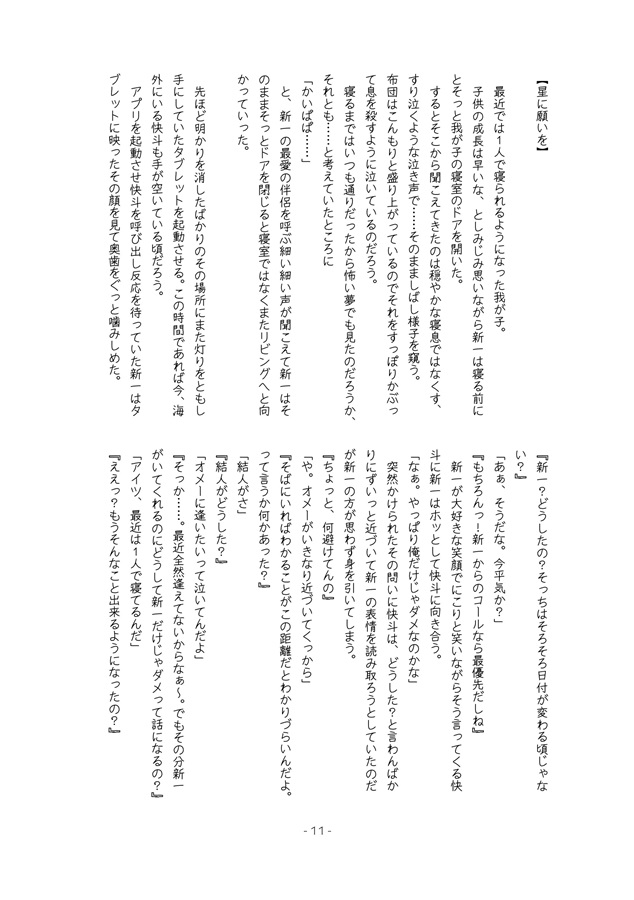 【星に願いを】
最近では1人で寝られるようになった我が子。
子供の成長は早いな、としみじみ思いながら新一は寝る前に
とそっと我が子の寝室のドアを開いた。
するとそこから聞こえてきたのは穏やかな寝息ではなくす、
すり泣くような泣き声で……そのまましばし様子を窺う。
布団はこんもりと盛り上がっているのでそれをすっぽりかぶっ
て息を殺すように泣いているのだろう。
寝るまではいつも通りだったから怖い夢でも見たのだろうか、
それとも……と考えていたところに
「かいぱぱ……」
と、新一の最愛の伴侶を呼ぶ細い細い声が聞こえて新一はそ
のままそっとドアを閉じると寝室ではなくまたリビングへと向
かっていった。
先ほど明かりを消したばかりのその場所にまた灯りをともし
手にしていたタブレットを起動させる。この時間であれば今、海
外にいる快斗も手が空いている頃だろう。
アプリを起動させ快斗を呼び出し反応を待っていた新一はタ
ブレットに映ったその顔を見て奥歯をぐっと噛みしめた。
『新一？どうしたの？そっちはそろそろ日付が変わる頃じゃな
い？』
「あぁ、そうだな。今平気か？」
『もちろんっ！新一からのコールなら最優先だしね』
新一が大好きな笑顔でにこりと笑いながらそう言ってくる快
斗に新一はホッとして快斗に向き合う。
「なぁ。やっぱり俺だけじゃダメなのかな」
突然かけられたその問いに快斗は、どうした？と言わんばか
りにずいっと近づいて新一の表情を読み取ろうとしていたのだ
が新一の方が思わず身を引いてしまう。
『ちょっと、何避けてんの』
「や。オメーがいきなり近づいてくっから」
『そばにいればわかることがこの距離だとわかりづらいんだよ。
って言うか何かあった？』
「結人がさ」
『結人がどうした？』
「オメーに逢いたいって泣いてんだよ」
『そっか……。最近全然逢えてないからなぁ～。でもその分新一
がいてくれるのにどうして新一だけじゃダメって話になるの？』
「アイツ、最近は1人で寝てるんだ」
『ええっ？もうそんなこと出来るようになったの？』
- 11 -